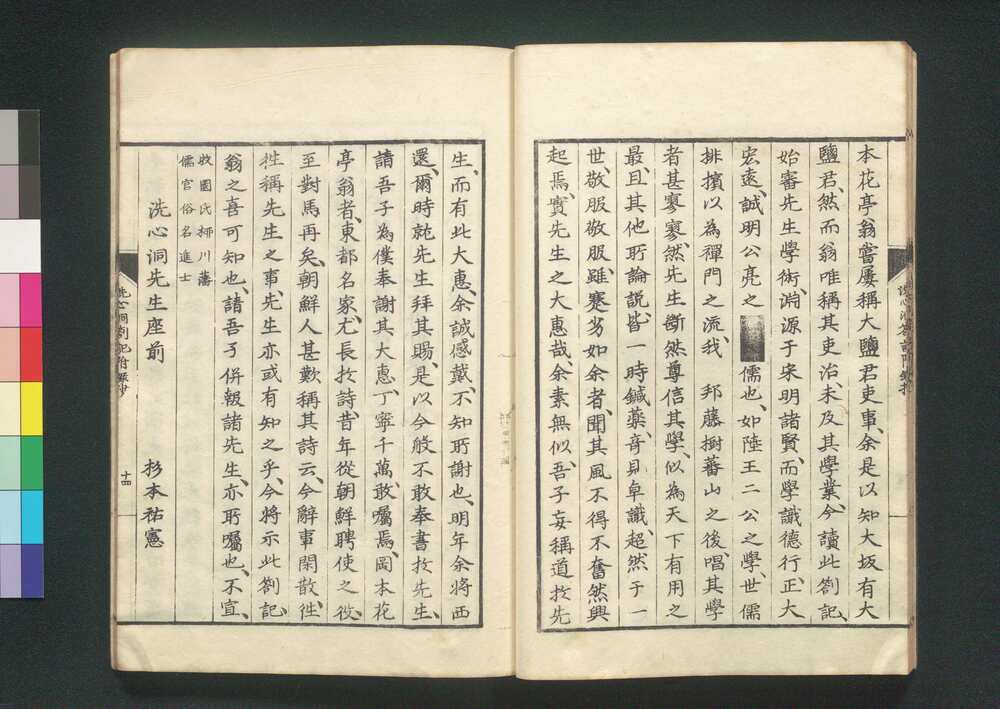 本花亭翁嘗屢稱大鹽君吏事、余是以知大坂有大
鹽君、然而翁唯稱其吏治、未及其學業、今讀此劄記、
始審先生學術、淵源于宋明諸賢、而學識德行、正大
宏遠、誠明公亮之儒也、如陸王二公之學、世儒
排擯以為禪門之流、我 邦藤樹蕃山之後、唱其學
者甚寥寥、然先生斷然尊信其學、似為天下有用之
最、且其他所論説、皆一時鍼藥、奇見卓識、超然于一
世、敬服敬服、雖蹇劣如余者、聞其風不得不奮然興
起焉、實先生之大惠哉、余素無似、吾子妄稱道於先
生、而有此大惠、余誠感戴、不知所謝也、明年余將西
還、爾時就先生拜其賜、是以今般不敢奉書於先生、
請吾子為僕奉謝其大惠、丁寧千萬、敢囑焉、岡本花
亭翁者、東都名家、尤長於詩、昔年從朝鮮聘使之役、
至對馬再矣、朝鮮人甚歎稱其詩云、今辭事閑散、往
往稱先生之事、先生亦或有知之乎、今將示此劄記、
翁之喜可知也、請吾子併報諸先生、亦所囑也、不宣、
牧園氏栁川藩
儒官俗名進士
洗心洞先生座前 杉本祐憲
洗心洞劄記附錄抄
十四